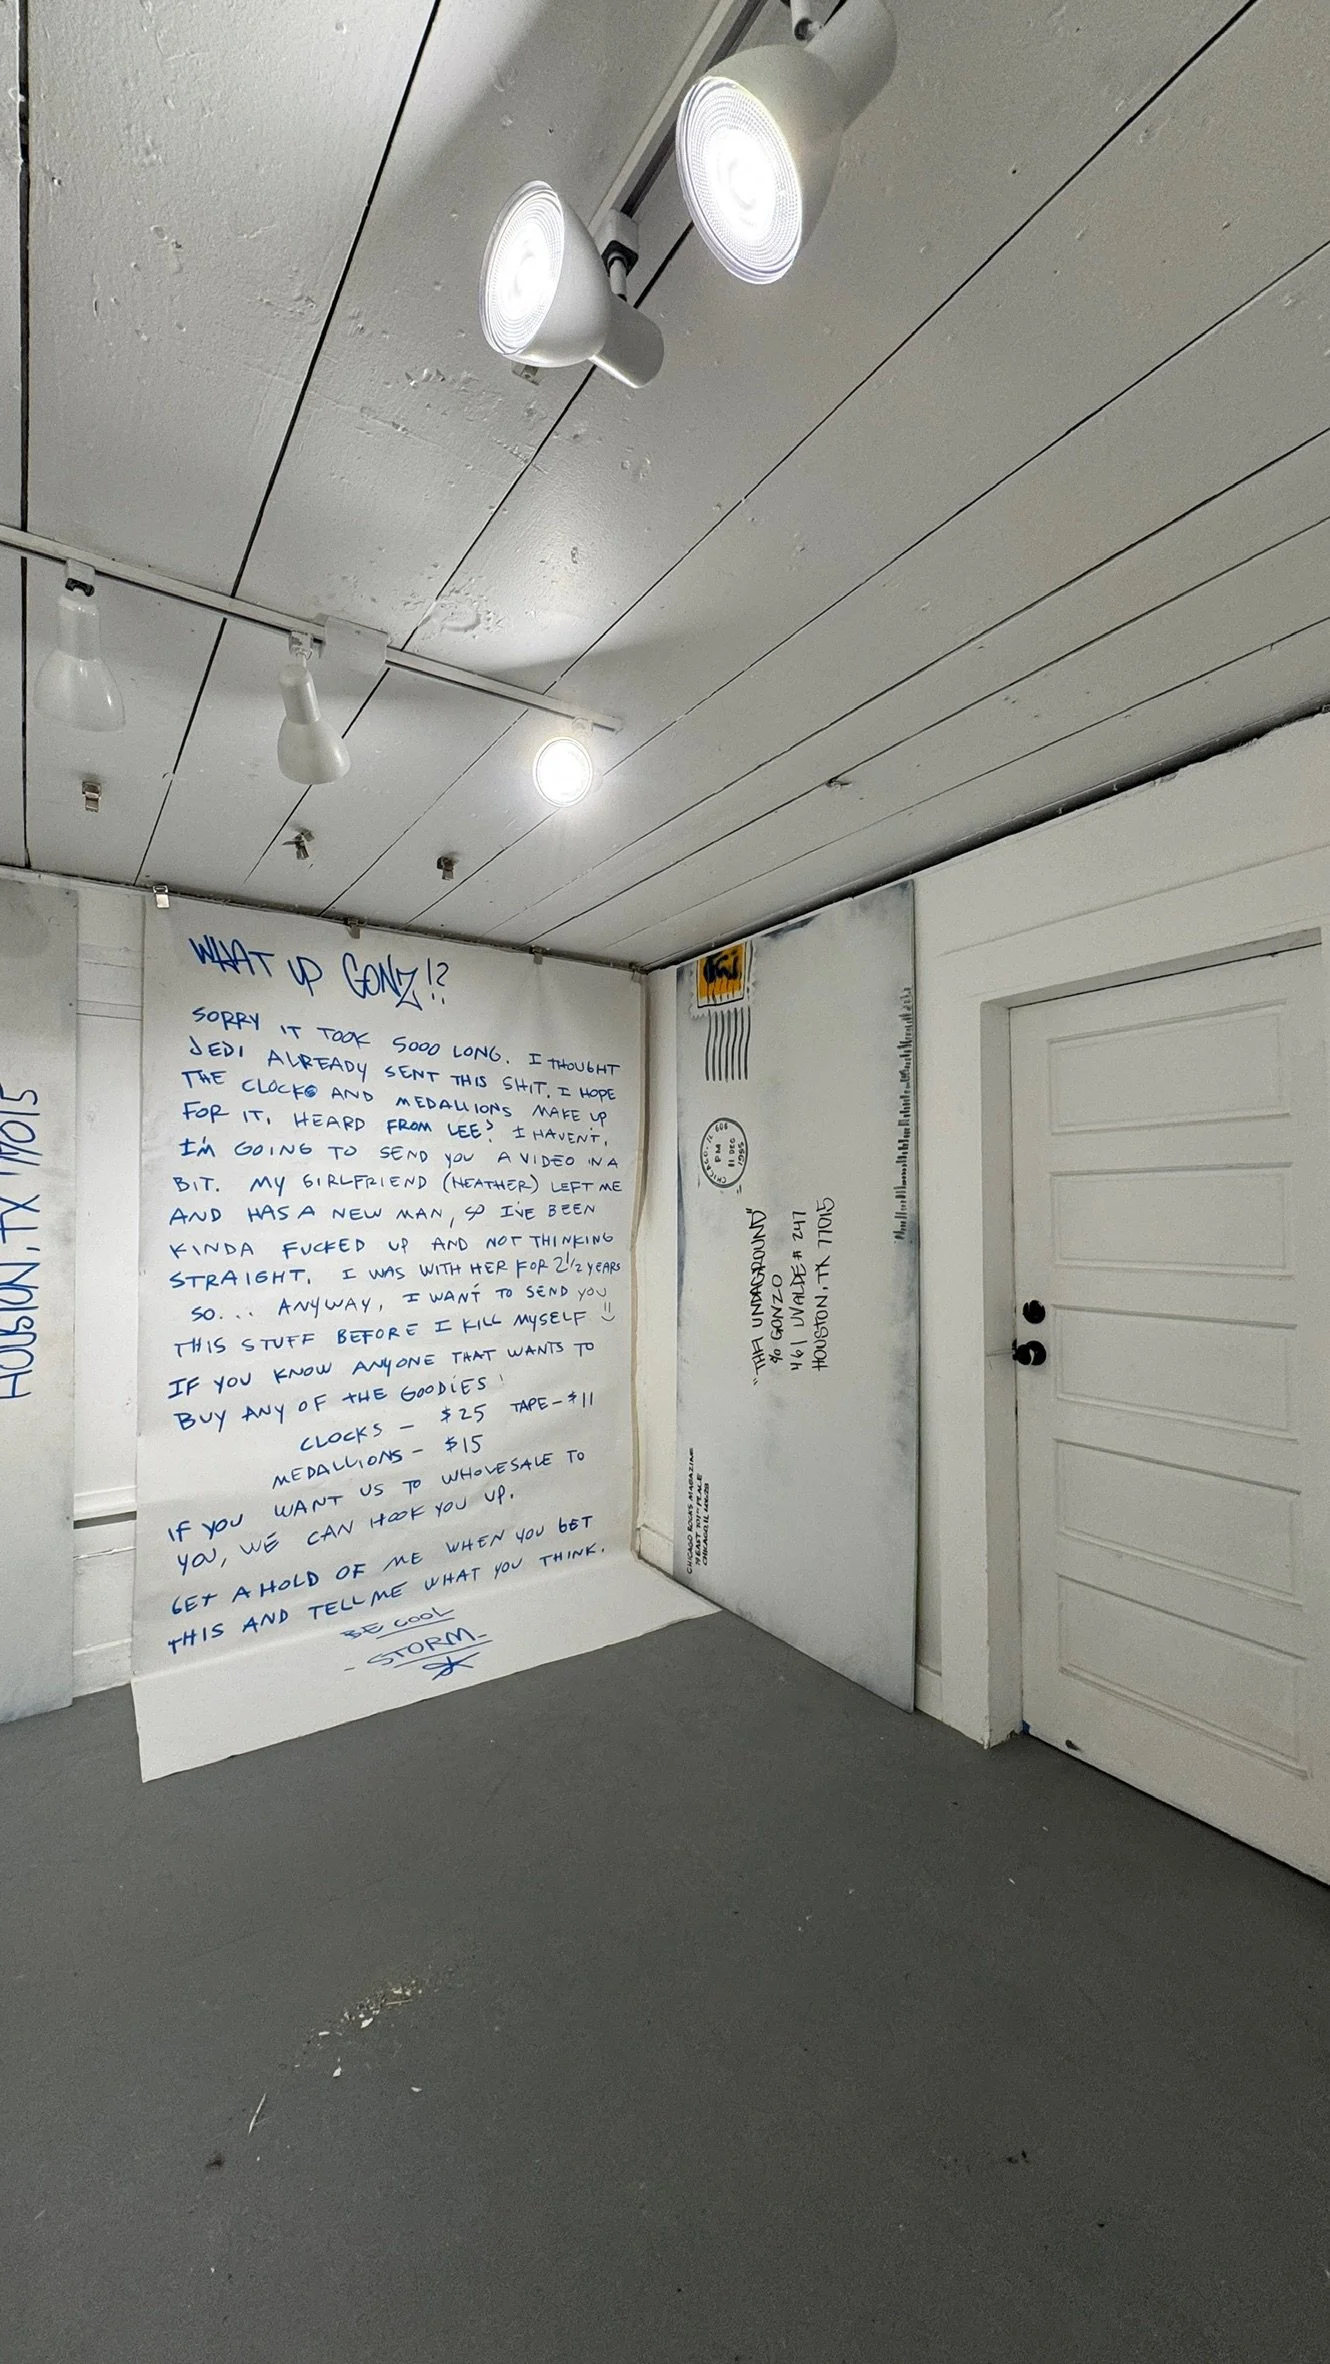 HOUSTON, TX 77015
WHAT UP GONZ!?
SORRY IT TOOK SOOO LONG. I THOUGHT
JEDI ALREADY SENT THIS SHIT. I HOPE
THE CLOCKS AND MEDALLIONS MAKE UP
FOR IT. HEARD FROM LEE? I HAVEN'T.
I'M GOING TO SEND YOU A VIDEO IN A
BIT. MY GIRLFRIEND (HEATHER) LEFT ME
AND HAS A NEW MAN, SO I'VE BEEN
KINDA FUCKED UP AND NOT THINKING
STRAIGHT. I WAS WITH HER FOR 2 1/2 YEARS
SO... ANYWAY, I WANT TO SEND YOU
THIS STUFF BEFORE I KILL MYSELF
IF YOU KNOW ANYONE THAT WANTS TO
BUY ANY OF THE GOODIES!
CLOCKS - $25 TAPE - $11
MEDALLIONS - $15
IF YOU WANT US TO WHOLESALE TO
YOU, WE CAN HOOK YOU UP.
GET A HOLD OF ME WHEN YOU GET
THIS AND TELL ME WHAT YOU THINK.
BE COOL
- STORM -
CHICAGO, IL 606
PM
11 DEC
1995
"THA UNDAGROUND"
% GONZO
461 UVALDE # 247
HOUSTON, TX 77015
CHICAGO ROCKS MAGAZINE
EAST 101ST PLACE
CHICAGO, IL 60628